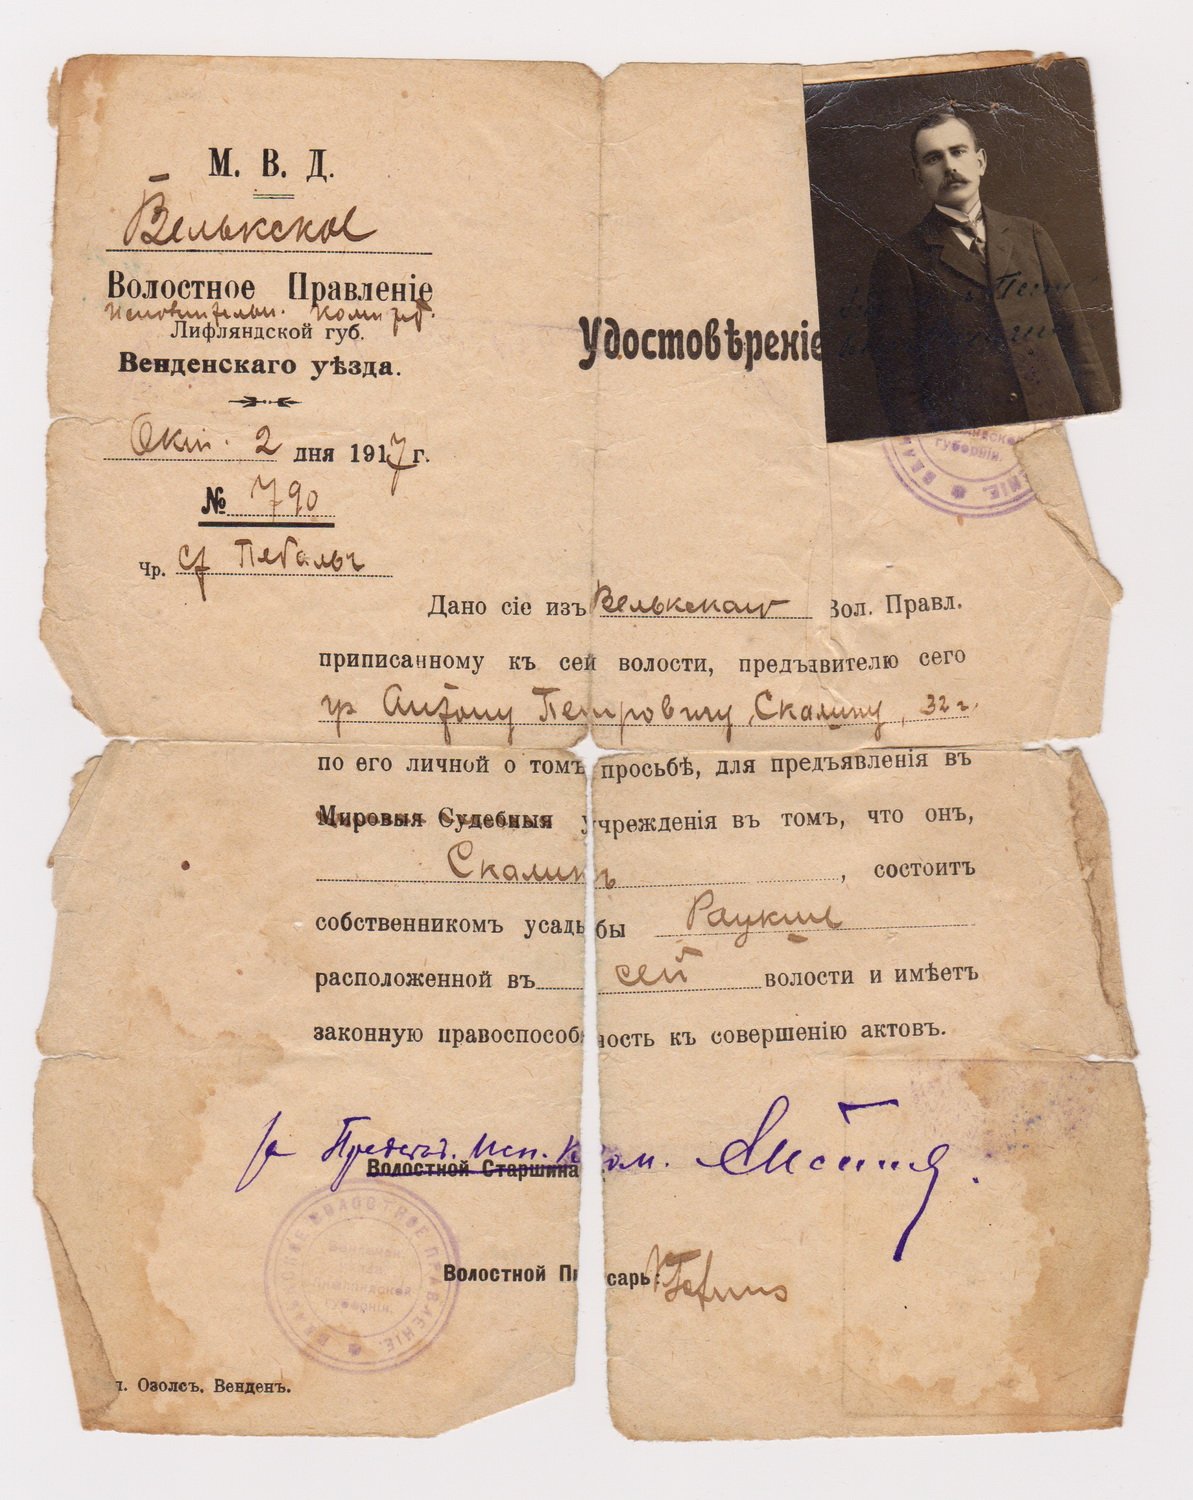 М. В. Д.
Велькское
Волостное Правленіе
Исполнительн. Комит.
Лифляндской губ.
Венденскаго уѣзда.
Окт. 2 дня 1917 г.
№ 790
Чр. Пебальг
Удостовѣреніе
губерніи.
Дано сіе изъ Велькскаго Вол. Правл.
приписанному къ сей волости, предъявителю сего
гр Антону Петровичу Скалину, 32 г.
по его личной о томъ просьбѣ, для предъявленія въ
Мировыя Судебныя учрежденія въ томъ, что онъ,
Скалинъ, состоитъ
собственникомъ усадьбы Раукши
расположенной въ сей волости и имѣетъ
законную правоспособность къ совершенію актовъ.
за Предсѣд. Исп. Ком.
Волостной Старшина
Волостной Писарь:
ВОЛОСТНОЕ ПРАВЛЕНІЕ.
Лифляндской
губерніи.
п. Озолсъ. Венденъ.